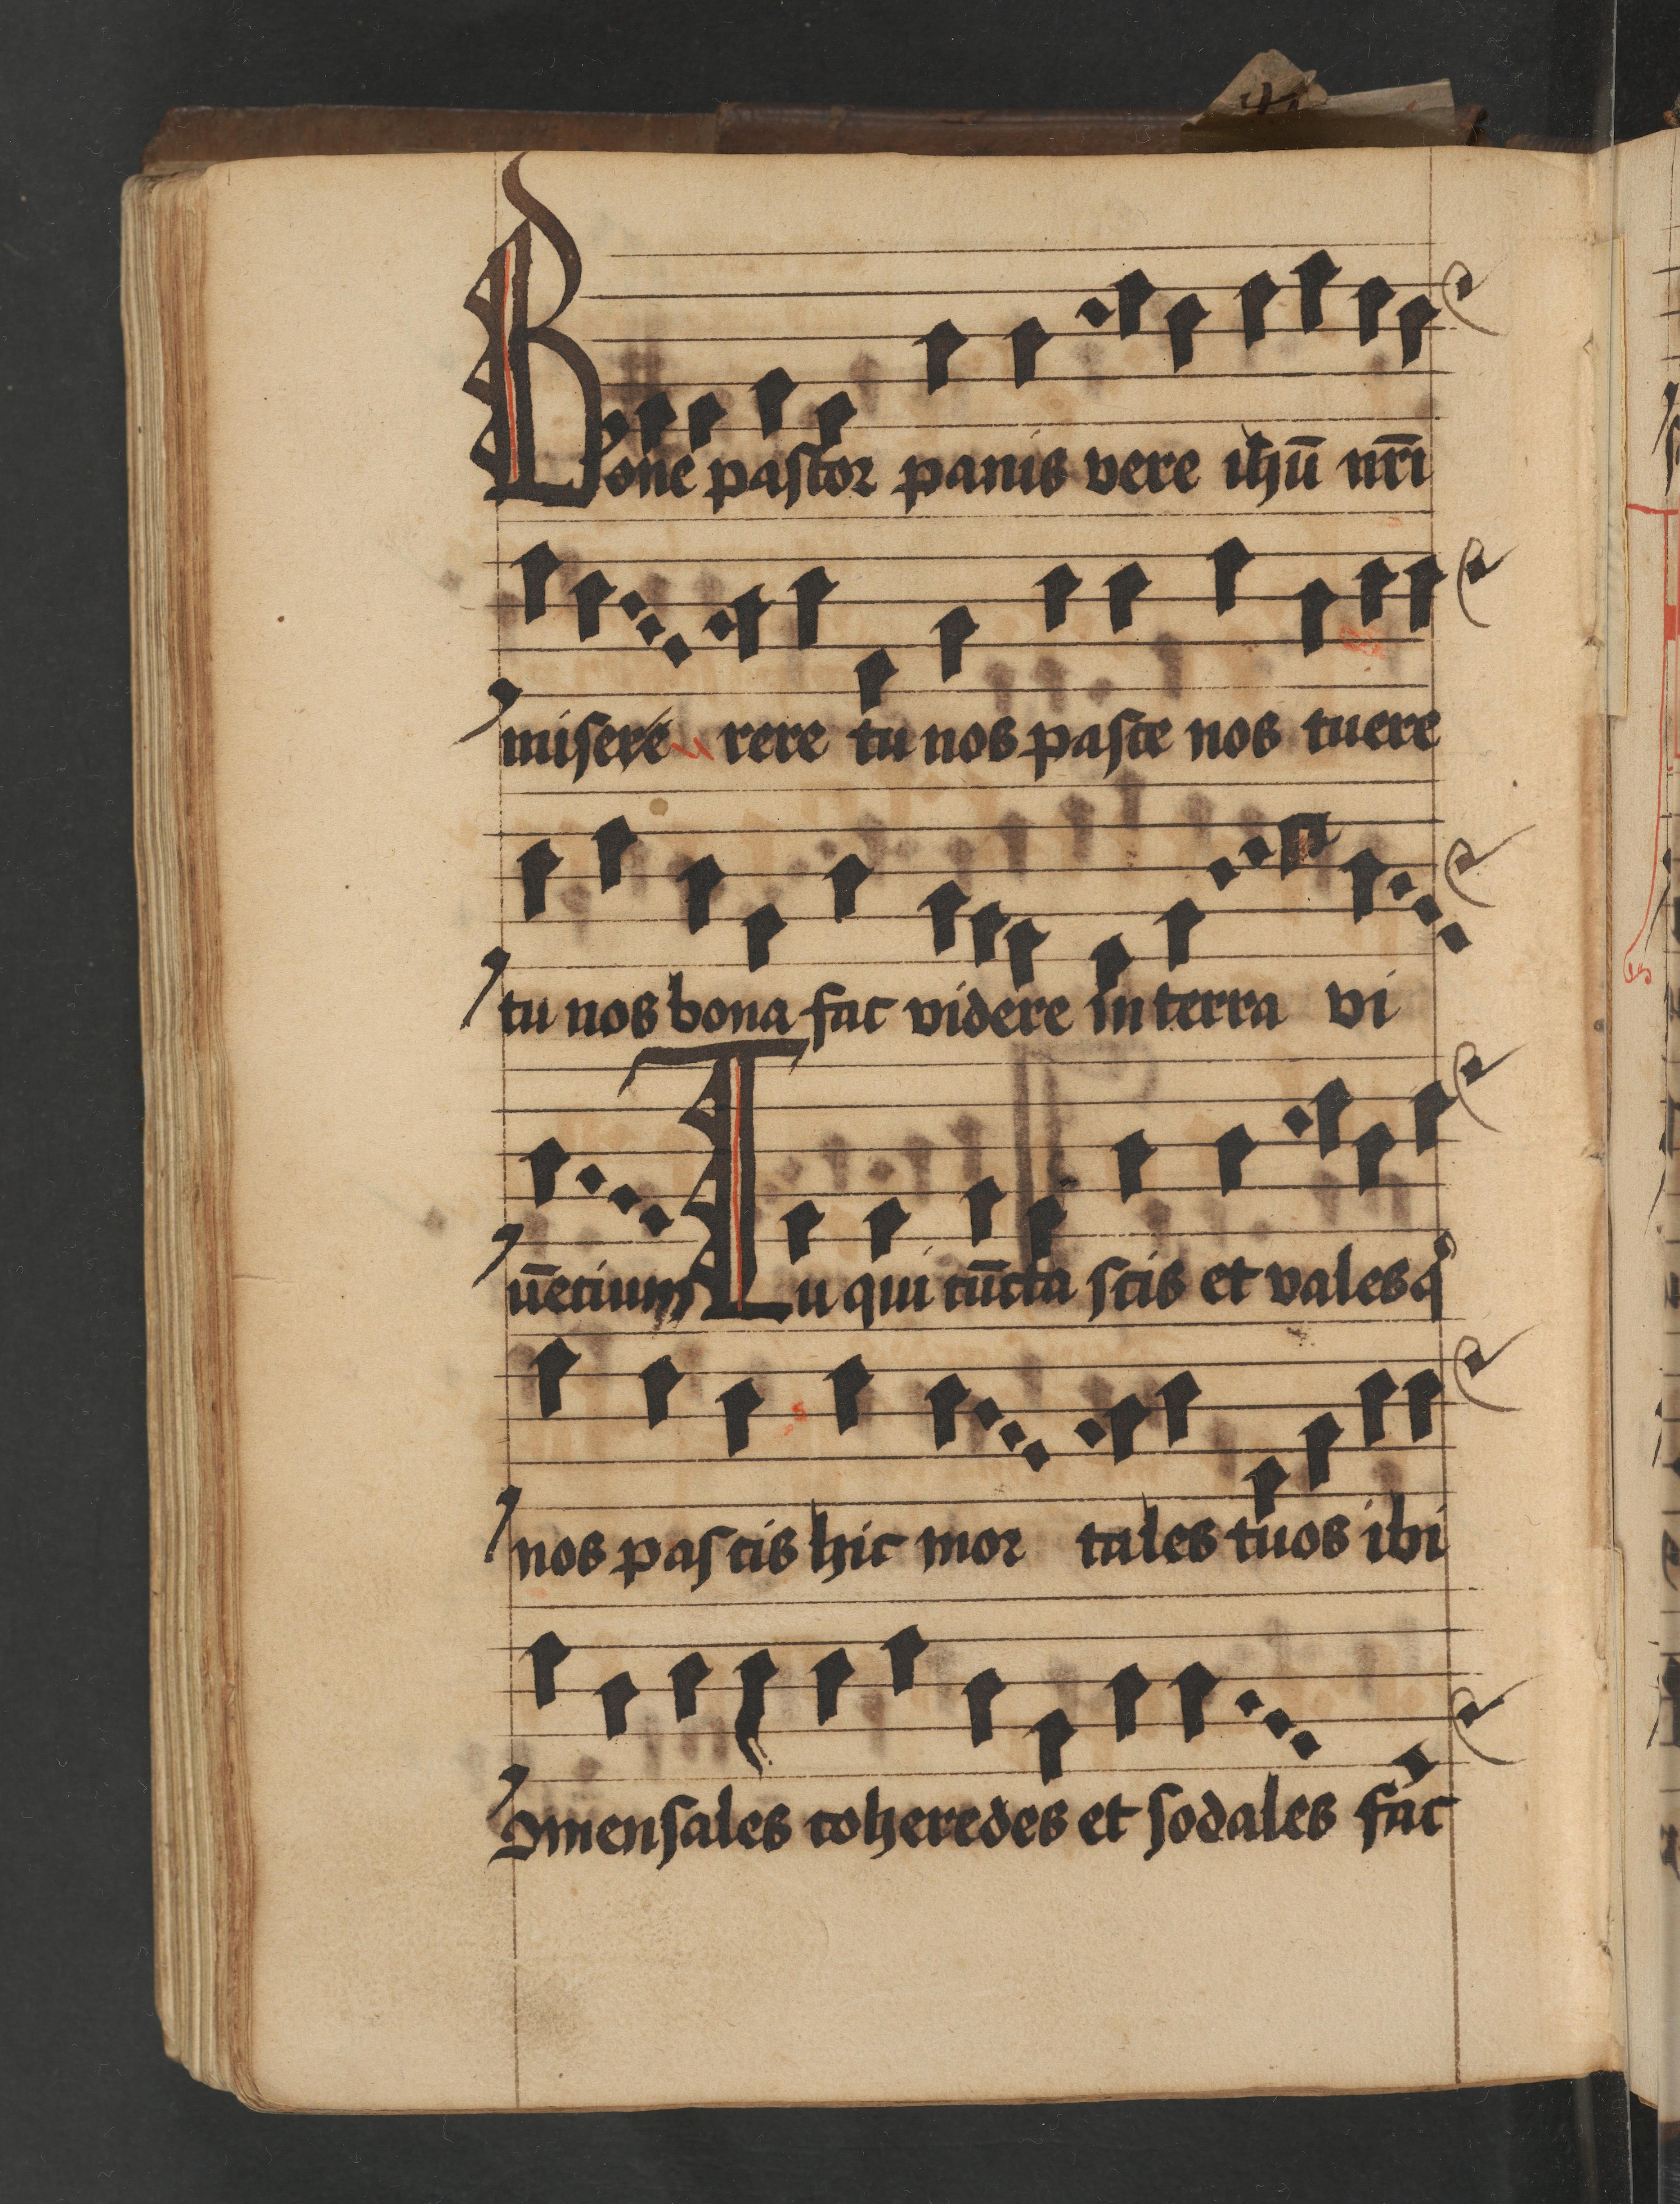 Bone pastor panis vere ihū nr̄i
misere rere tu nos pasce nos tuere
tu nos bona fac videre in terra vi
uēcium Tu qui cūcta scis et vales q̇
nos pascis hic mor tales tuos ibi
ꝯmensales coheredes et sodales fac